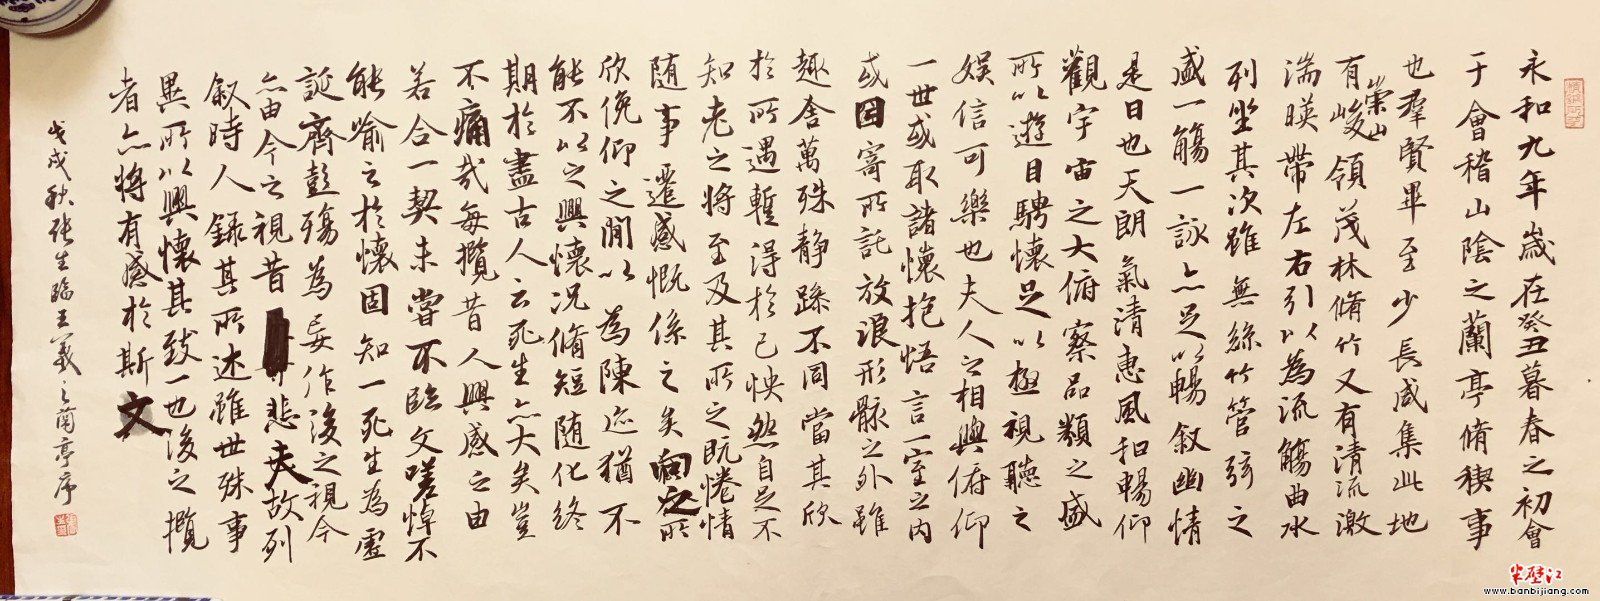 永和九年歲在癸丑暮春之初會
于會稽山陰之蘭亭脩稧事
也羣賢畢至少長咸集此地
有崇山峻領茂林脩竹又有清流激
湍暎帶左右引以為流觴曲水
列坐其次雖無絲竹管弦之
盛一觴一詠亦足以暢叙幽情
是日也天朗氣清惠風和暢仰
觀宇宙之大俯察品類之盛
所以遊目騁懷足以極視聽之
娛信可樂也夫人之相與俯仰
一世或取諸懷抱悟言一室之內
或因寄所託放浪形骸之外雖
趣舍萬殊静躁不同當其欣
於所遇暫得於己怏然自足不
知老之將至及其所之既惓情
随事遷感慨係之矣向之所
欣俛仰之間以為陳迹猶不
能不以之興懷況脩短随化終
期於盡古人云死生亦大矣豈
不痛哉每攬昔人興感之由
若合一契未嘗不臨文嗟悼不
能喻之於懷固知一死生為虛
誕齊彭殤為妄作後之視今
亦由今之視昔悲夫故列
叙時人錄其所述雖世殊事
異所以興懷其致一也後之攬
者亦將有感於斯文
戊戌秋张生臨王羲之蘭亭序
半壁江
www.banbijiang.com